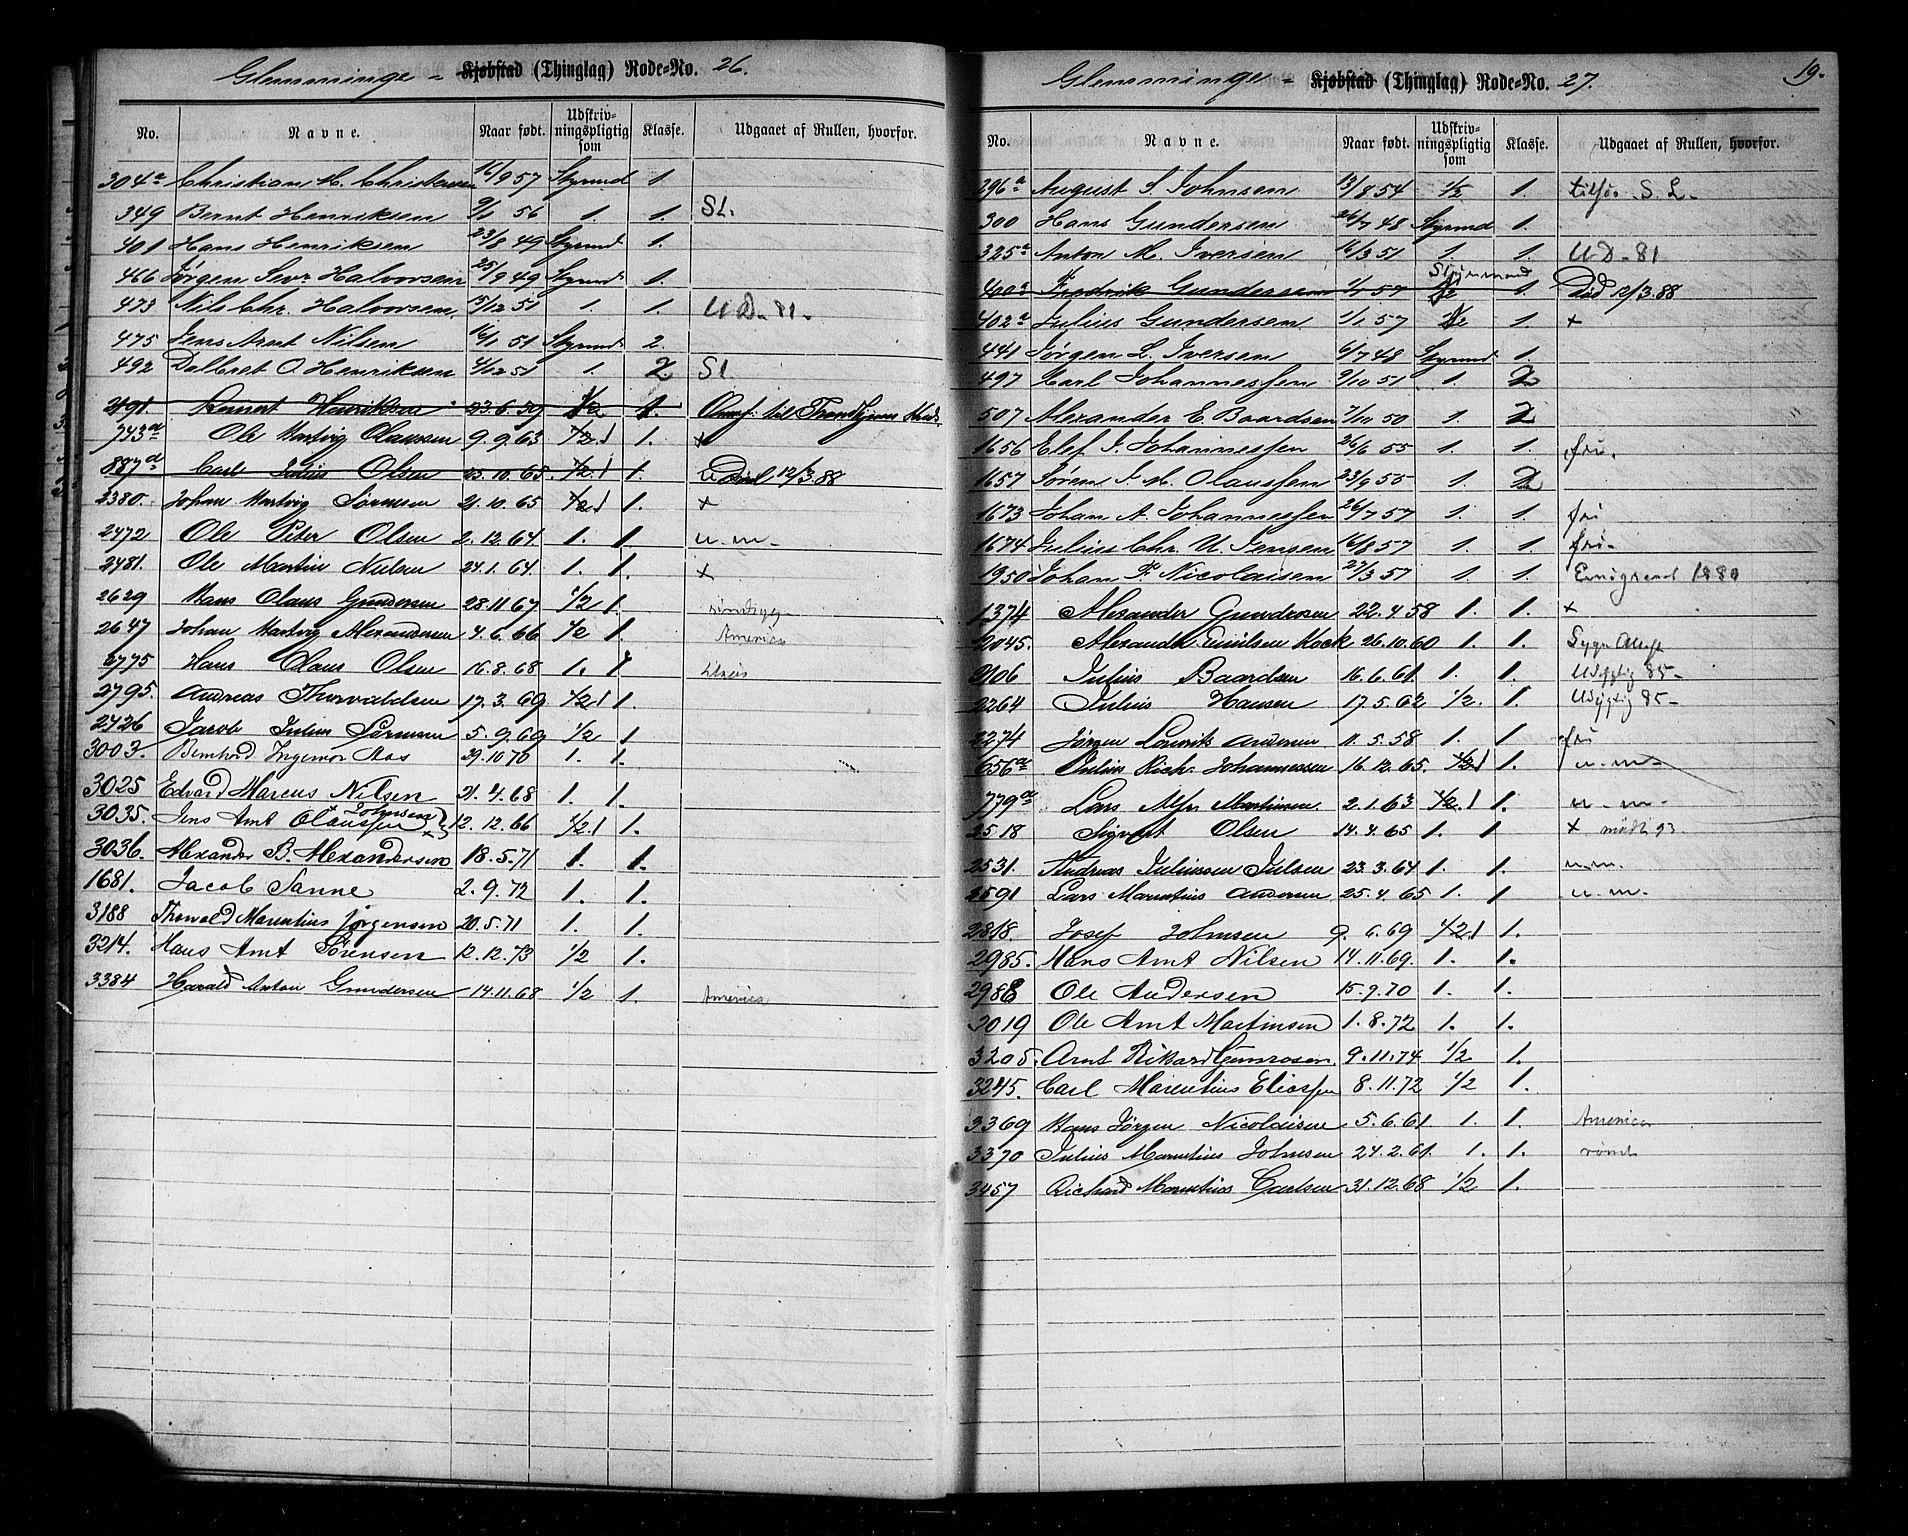 Glemminge - Kjøbstad (Thinglag) Rode=No. 26.
No. Navne. Naar født. Udskriv-ningspligtig som Klasse. Udgaaet af Rullen, hvorfor.
304a Christian M. Christensen 16/9 57 Styrmd 1.
349 Bernt Henriksen 9/1 56 1. 1. SL.
401 Hans Henriksen 23/8 49 Styrmd 1.
466 Jørgen Sevr. Halvorsen 25/9 49 Styrmd 1.
473 Nils Chr. Halvorsen. 15/12 51 1. 1. UD-81.
475 Jens Arnt Nilsen 16/1 51 Styrmd 2.
492 Dalbret O. Henriksen 4/12 51 1. 2 Sl.
2491 Henriksen 23.6.59 1/2 1. til Trondhjems
743a Ole Hartvig Olaussen 9.9.63 1/2 1 1. x
887a Carl Julius Olsen 25.10.65. 1/2 1 1. Død 12/3.88
2380. Johan Hartvig Sørensen 21.10.65 1/2 1 1. x
2472 Ole Peter Olsen 2.12.64 1. 1. u.m-
2481. Ole Martin Nielsen 24.1.64 1. 1. x
2629 Hans Olaus Gundersen 28.11.67 1/2 1.
2647 Johan Hartvig Alexandersen 4.6.66 1/2 1. America
2775 Hans Olaus Olsen 16.8.68 1. 1
2795. Andreas Thorvaldsen 17.3.69 1/2 1 1.
2426 Jacob Julius Sørensen 5.9.69 1/2 1
3003. Bernhard Ingemar Aas 29.10.70 1. 1.
3025 Edvard Marcus Nilsen 21.4.68 1. 1.
3035. Jens Arnt Olaussen x Johnsen x 12.12.66 1/2 1 1.
3036. Alexander B. Alexandersen 18.5.71 1. 1.
1681. Jacob Sanne 2.9.72 1. 1.
3188 Thorvald Marentius Jørgensen 20.5.71 1. 1.
3214. Hans Arnt Sørensen 12.12.73 1/2 1.
3384 Harald Anton Gundersen 14.11.68 1/2 1. America
19.
Glemminge - Kjøbstad (Thinglag) Rode=No. 27.
No. Navne. Naar født. Udskriv-ningspligtig som Klasse. Udgaaet af Rullen, hvorfor.
296a August S. Johnsen 13/8 54 1/2 1. S.L-
300 Hans Gundersen 26/7 48 Styrmd 1.
325a Anton M. Iversen 16/3 51 1. 1. UD-81
Styrmand
400a Fredrik Gundersen 1/1 57 1/2 1. Død 12/3.88
402a Julius Gundersen 1/1 57 1/2 1. x
441 Jørgen L. Iversen 6/7 48 Styrmd 1.
497 Karl Johannessen 9/10 51 1. 2
507 Alexander E. Baardsen 7/10 50 1. 2
1656 Elef J. Johannessen 26/6 55 1. 1. fri.
1657 Søren J. M. Olaussen 23/9 55 1. 2
1673 Johan A. Johannessen 26/7 57 1. 1. fri
1674 Julius Chr. U. Jensen 16/8 57 1. 1. fri-
1950 Johan P. Nicolaisen 27/3 57 1. 1. Emigreret 1880
1374 Alexander Gundersen 22.4.58 1. 1. x
2045. Alexander Emilsen Kock 26.10.60 1. 1.
2106 Julius Baardsen 16.6.61 1. 1. Udygtig 85-
2264 Julius Hansen 17.5.62 1/2. 1. Udygtig 85-
2274 Jørgen Laurits Andersen 11.5.58 1. 1 fri
656a Julius Rich. Johannessen 16.12.65. 1/2 1 1. u.m-
779a Lars Alfr. Martinsen 2.1.63 1/2. 1 1. u-m-
2518 Sigvart Olsen 14.4.65 1. 1 x mødt 93
2531. Andreas Juliussen Julsen 23.3.64 1. 1. u.m.
2591 Lars Marentius Andersen 25.4.65 1. 1 u.m.
2818. Josef Johnsen 9.6.69 1/2 1 1.
2985. Hans Arnt Nilsen 14.11.69. 1. 1.
2986 Ole Andersen 15.9.70 1. 1.
3019 Ole Arnt Martinsen 1.8.72 1. 1.
3205. Arnt Rikard Gunrosen. 9.11.74 1/2 1.
3245. Carl Marentius Eliassen 8.11.72 1/2 1.
3369 Hans Jørgen Nicolaisen 5.6.61 1. 1. America
3370 Julius Marentius Johnsen 24.2.61 1. 1. rømt
3457 Richard Marentius Carlsen 31.12.68 1/2 1.